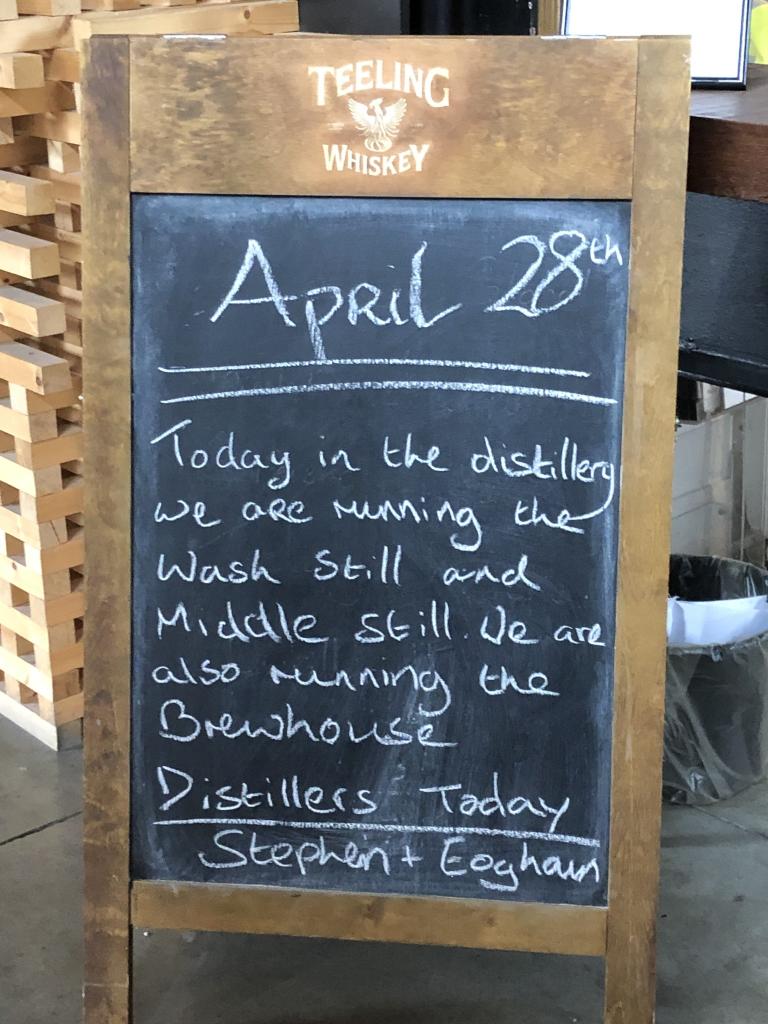 TEELING
WHISKEY
April 28th
Today in the distillery
we are running the
Wash Still and
Middle Still. We are
also running the
Brewhouse
Distillers Today
Stephen + Eoghain